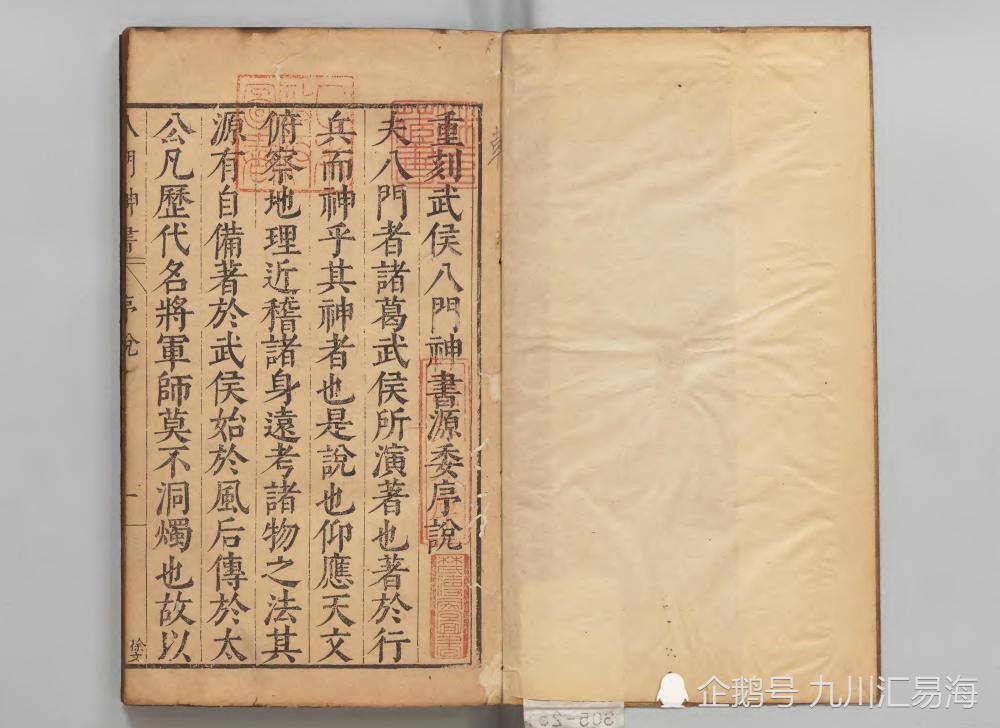 重刻武侯八門神書源委序說
夫八門者諸葛武侯所演著也著於行
兵而神乎其神者也是說也仰應天文
俯察地理近稽諸身遠考諸物之法其
源有自備著於武侯始於風后傳於太
公凡歷代名將軍師莫不洞燭也故以
八門神書 序說 一
305-26
企鹅号 九川汇易海